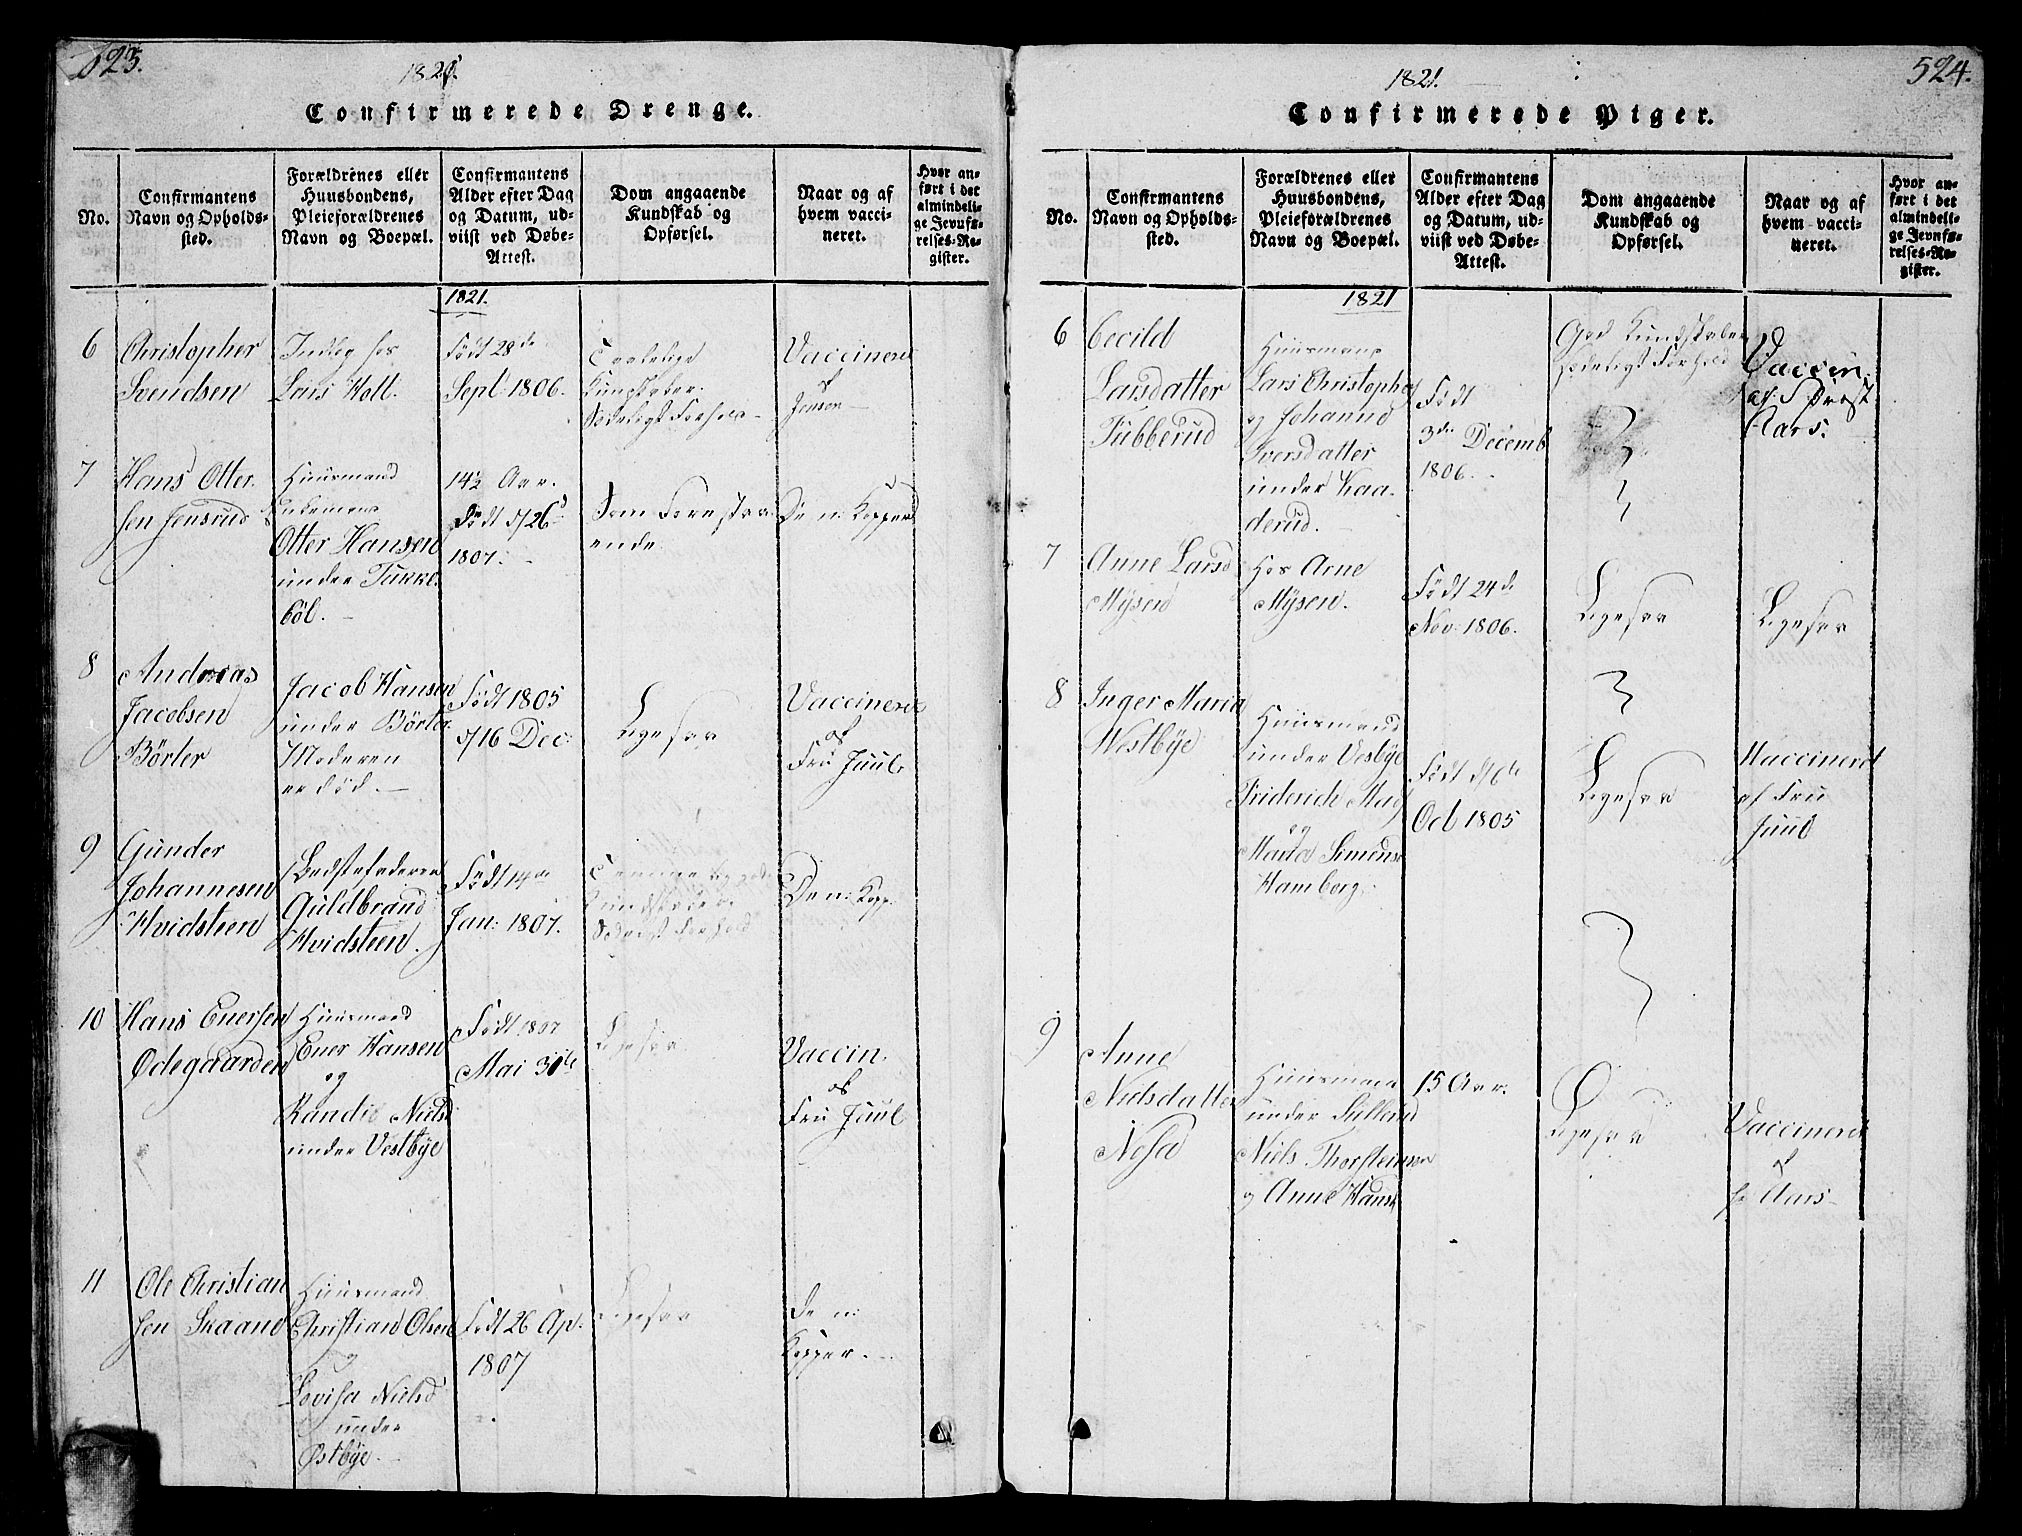 523.
1821.
Confirmerede Drenge.
No.
Confirmantens
Navn og Opholds-
sted.
Forældrenes eller
Huusbondens,
Pleieforældrenes
Navn og Boepæl.
Confirmantens
Alder efter Dag
og Datum, ud-
viist ved Døbe-
Attest.
Dom angaaende
Kundskab og
Opførsel.
Naar og af
hvem vacci-
neret.
Hvor an-
ført i det
almindeli-
ge Jevnfø-
relses-Re-
gister.
1821.
6
Christopher
Svendsen
Indleg hos
Lars Holt.
Født 28de
Sept: 1806.
Taalelige
Kundskaber.
Sædeligt Forhold
Vaccineret
af
Jensen
7
Hans Otter-
sen Jensrud
Huusmand
Otter Hansen
under Tukke-
böl.
14½ Aar.
Födt d/26
1807.
Som Forestaa-
ende
De n: Kopper
8
Andreas
Jacobsen
Börter
Jacob Hansen
under Börter
Moderen
er död.
Födt 1805
d/16 Dec:
Ligesaa
Vaccineret
af
Fru Juul
9
Gunder
Johannesen
Hvidsteen
Bedstefaderen
Guldbrand
Hvidsteen.
Födt 14de
Jan: 1807.
Kundskaber
Sædeligt Forhold
De n: Kopp.
10
Hans Enersen
Ødegaarden
Huusmand
Ener Hansen
og
Randi Nielsd
under Vestbÿe
Födt 1807
Mai 31te
Ligesaa
Vaccin.
af
Fru Juul
11
Ole Christian
sen Skaand
Huusmand
Christian Olsen
og
Lovisa Nielsd
under
Østbÿe
Födt 26 Ap.
1807
Ligesaa
De n:
Kopper.
524.
1821.
Confirmerede Piger.
No.
Confirmantens
Navn og Opholds-
sted.
Forældrenes eller
Huusbondens,
Pleieforældrenes
Navn og Boepæl.
Confirmantens
Alder efter Dag
og Datum, ud-
viist ved Døbe-
Attest.
Dom angaaende
Kundskab og
Opførsel.
Naar og af
hvem vacci-
neret.
Hvor an-
ført i det
almindeli-
ge Jevnfø-
relses-Re-
gister.
1821
6
Cecild
Larsdatter
Tubberud
Huusmand
Lars Christopher
og Johanne
Iversdatter
under Kaa-
derud.
Födt
3de Decemb
1806.
God Kundskaber
Sædeligt Forhold
Vaccin.
af S: Prest
Aars.
7
Anne Larsd
Mÿsen
Hos Arne
Mÿsen.
Födt 24de
Nov: 1806.
Ligesaa
Ligesaa
8
Inger Maria
Westbÿe
Huusmand
under Vesbÿe
Friderich Mads
og
Maria Simens
Hamberg.
Födt d/6te
Oct 1805
Ligesaa
Vaccineret
af Fru
Juul
9
Anne
Nielsdatter
Huusmand
under
Niels Thorsteinsen
og Anne Hansd
15 Aar.
Ligesaa
Vaccineret
af
Hr Aars